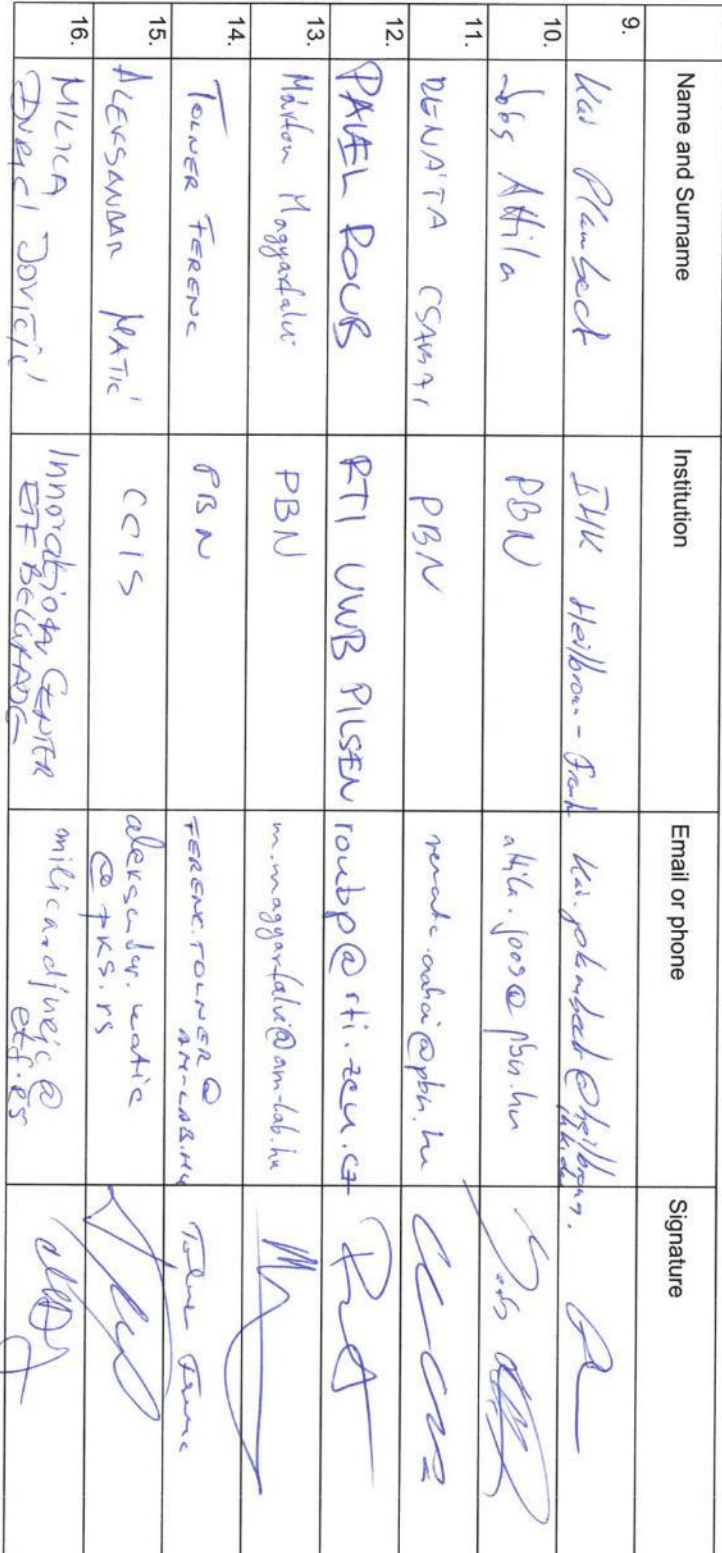 Name and Surname Institution Email or phone Signature
9. Kai Plambeck IHK Heilbronn - Frank
10. Joós Attila PBN attila.joos@pbn.hu
11. RENÁTA CSABAI PBN renata.csabai@pbn.hu
12. PAVEL ROUB RTI UWB PILSEN roubp@rti.zcu.cz
13. Márton Magyarfalvi PBN m.magyarfalvi@am-lab.hu
14. TOLNER FERENC PBN FERENC.TOLNER@
AM-LAB.HU Tolner Ferenc
15. ALEKSANDAR MATIĆ CCIS aleksandar.matic
@pks.rs
16. MILICA Innovation CENTER milica.djuric@
JOVIČIĆ ETF BELGRADE etf.rs